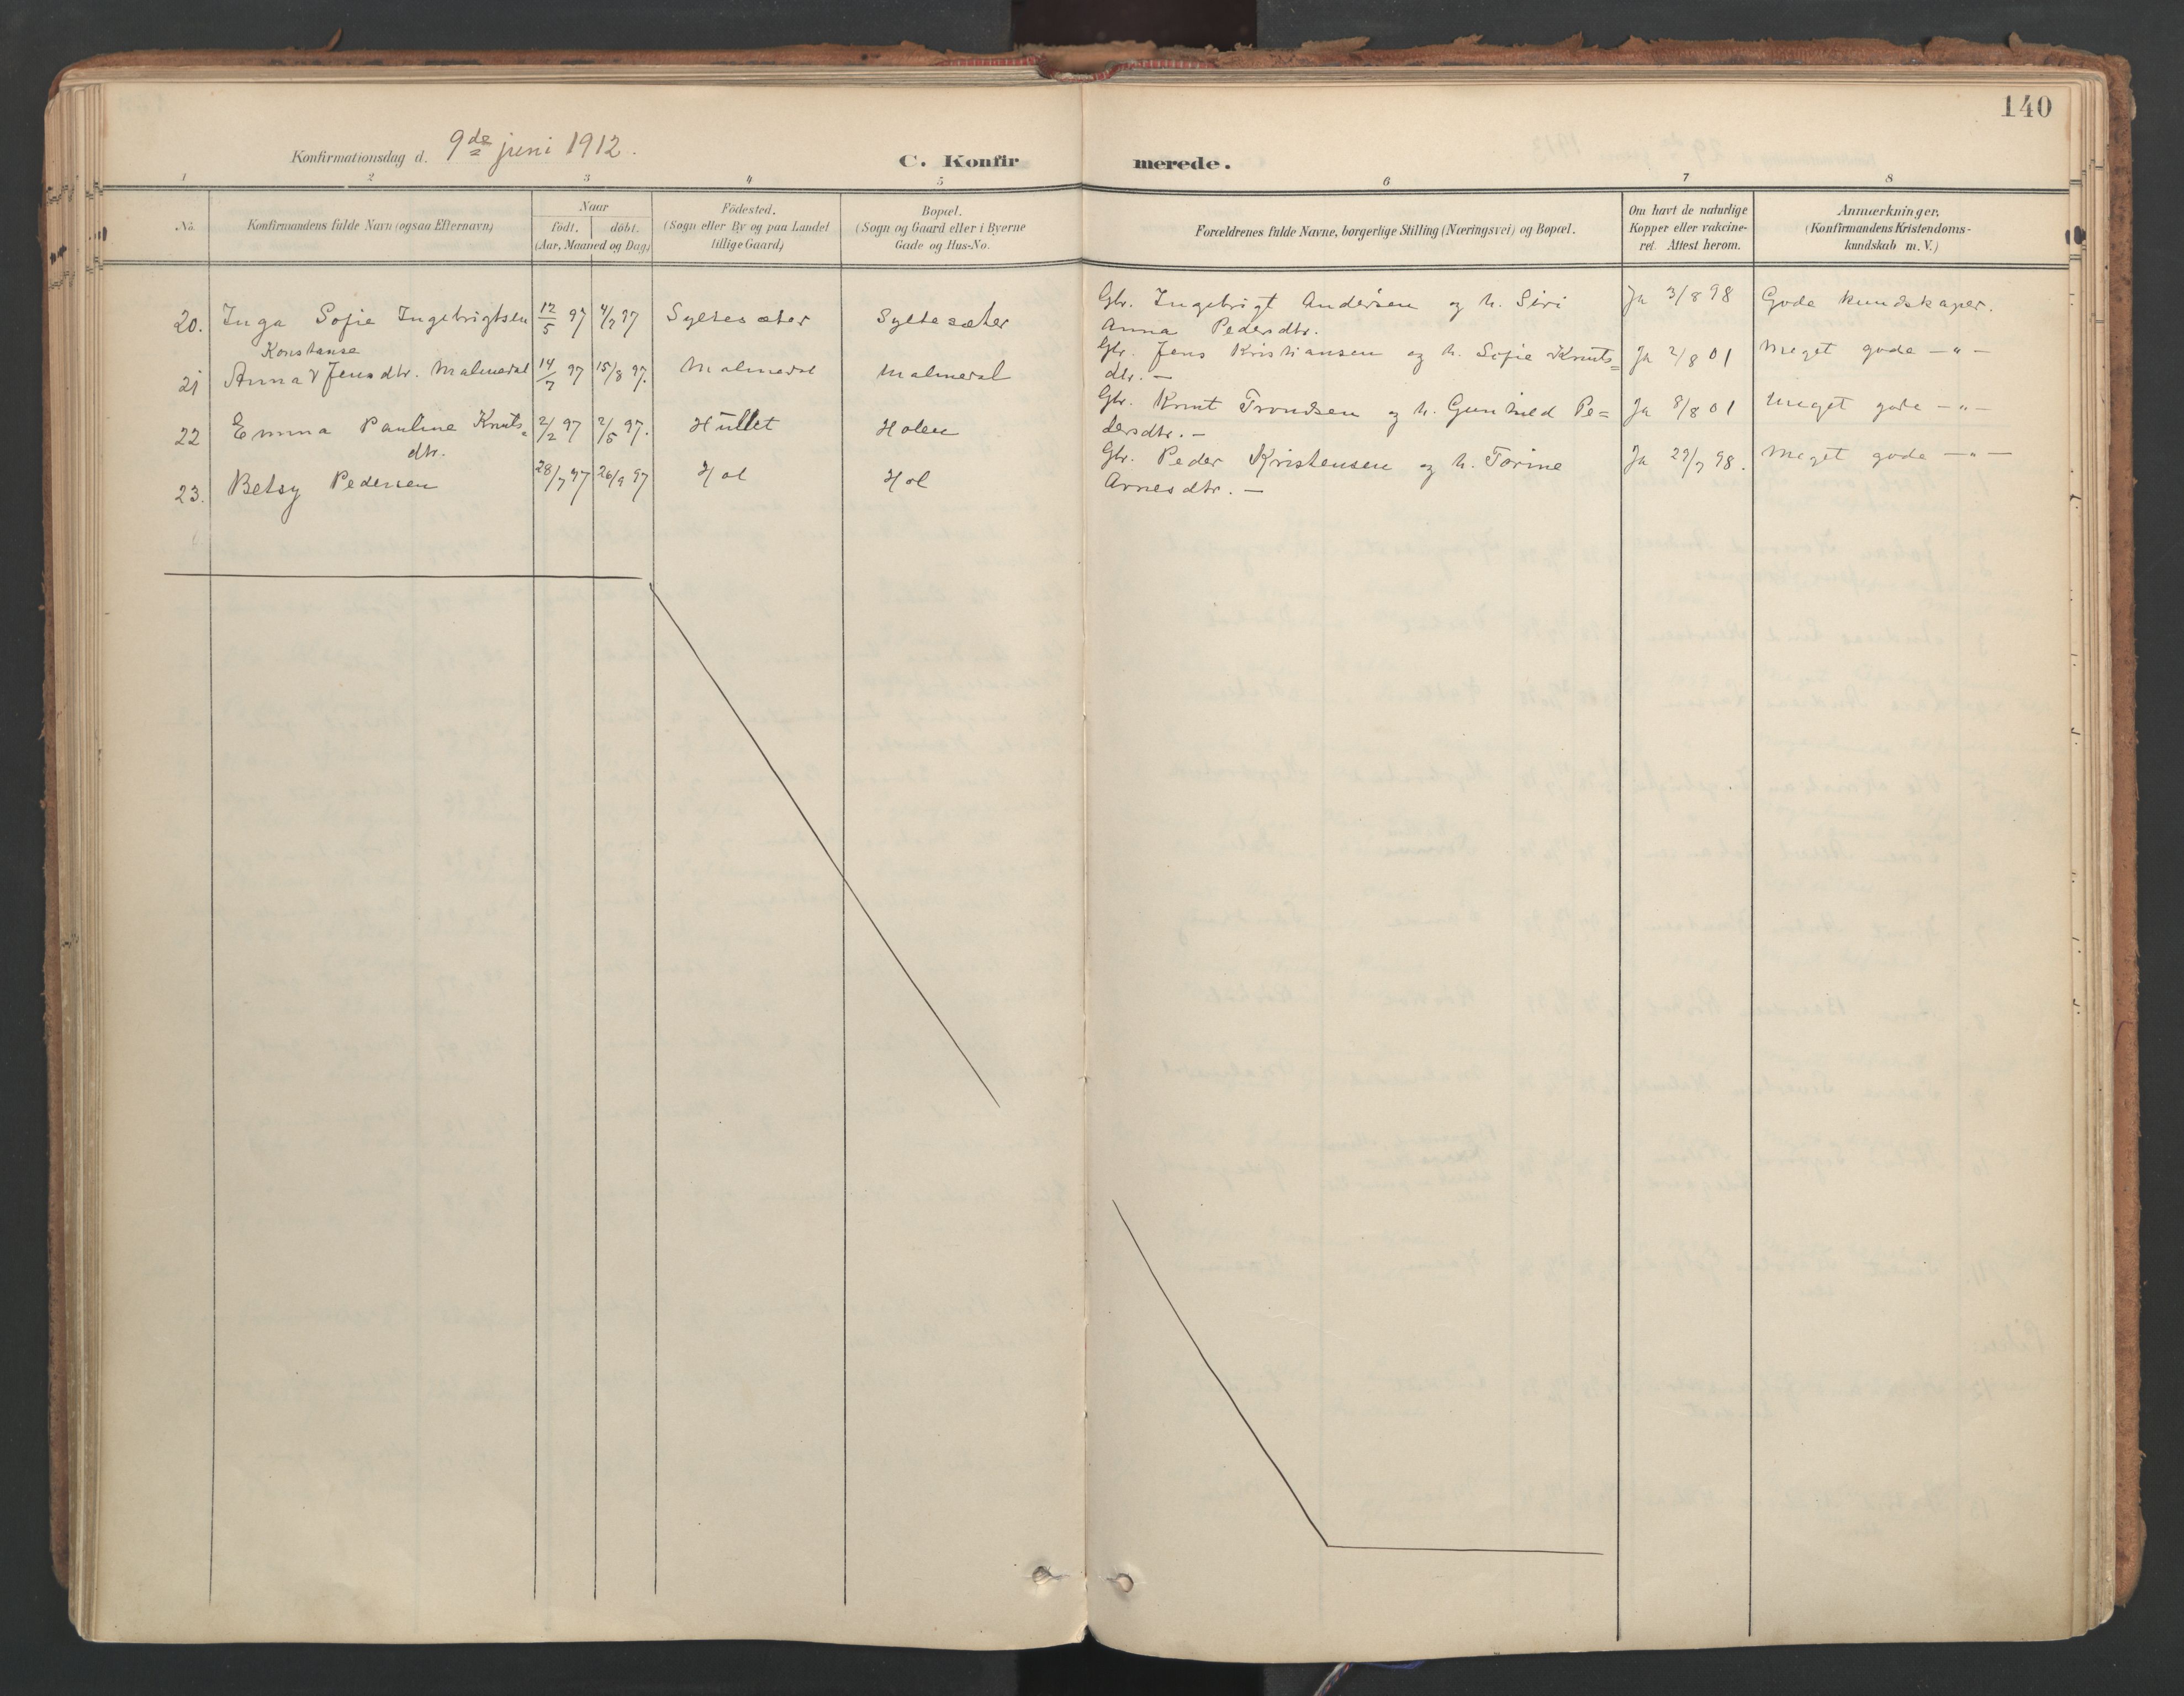 140
Konfirmationsdag d. 9de juni 1912.
C. Konfirmerede.
1 2 3 4 5 6 7 8
No.
Konfirmandens fulde Navn (ogsaa Efternavn)
Naar
födt. döbt.
(Aar, Maaned og Dag)
Födested.
(Sogn eller By og paa Landet
tillige Gaard)
Bopæl.
(Sogn og Gaard eller i Byerne
Gade og Hus-No.
Forældrenes fulde Navne, borgerlige Stilling (Næringsvei) og Bopæl.
Om havt de naturlige
Kopper eller vakcine-
ret. Attest herom.
Anmærkninger.
(Konfirmandens Kristendoms-
kundskab m. V.)
20. Inga Sofie Ingebrigtsen 12/5 97 4/7 97 Syltesæter Syltesæter Gbr. Ingebrigt Andersen og h. Siri Ja 3/8 98 Gode kundskaper.
Anna Pedersdtr.
Konstanse
21 Anna v Jensdtr. Malmedal 14/7 97 15/8 97. Malmedal Malmedal Gbr. Jens Kristiansen og h. Sofie Knuts= Ja 2/8 01 Meget gode —"—
dtr. —
22 Emma Pauline Knuts= 2/2 97 2/5 97. Hullet Holen Gbr. Knut Trondsen og h. Gunhild Pe= Ja 8/8 01 Meget gode —"—
dtr. dersdtr. —
23. Betsy Pedersen 28/7 97 26/9 97 Hol Hol Gbr. Peder Kristensen og h. Torine Ja 29/7 98. Meget gode —"—
Arnesdtr. —